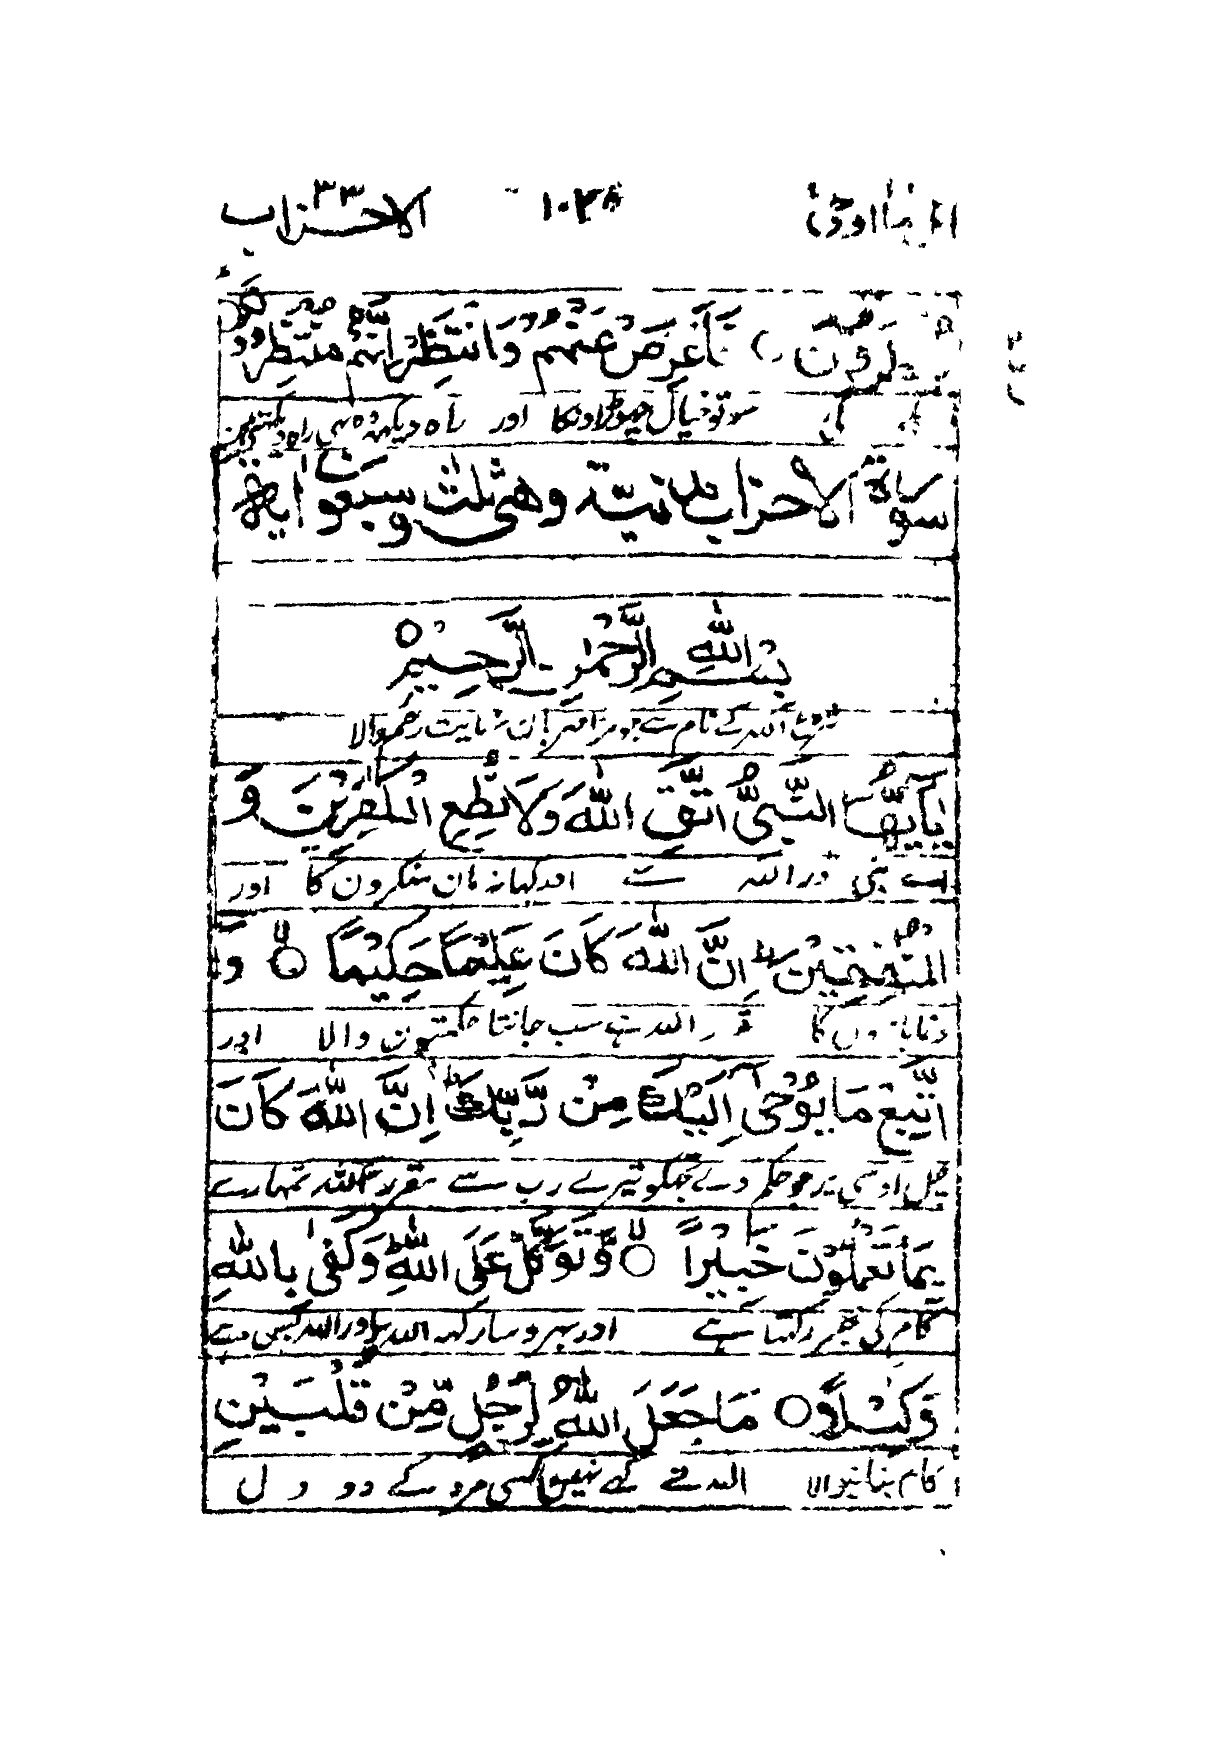 الاحزاب ٣٣
فَاَعْرِضْ عَنْهُمْ وَانْتَظِرْ اِنَّهُمْ مُنْتَظِرُوْنَ
سو تو خیال چھوڑ اونکا اور راہ دیکھ وہ بھی راہ دیکھتے ہیں
سورة الاحزاب مدنیتة وهی ثلث وسبعون ایة
بِسْمِ اللّٰهِ الرَّحْمٰنِ الرَّحِیْمِ
اللہ کے نام سے جو بڑا مہربان نہایت رحم والا
یٰۤاَیُّهَا النَّبِیُّ اتَّقِ اللّٰهَ وَلَا تُطِعِ الْكٰفِرِیْنَ وَ
اے نبی ڈر اللہ سے اور کہا نہ مان منکرون کا اور
الْمُنٰفِقِیْنَ ؕ اِنَّ اللّٰهَ كَانَ عَلِیْمًا حَكِیْمًا ۙ وَّ
دغابازوں کا اللہ ہے سب جانتا حکمتون والا اور
اتَّبِعْ مَا یُوْحٰۤی اِلَیْكَ مِنْ رَّبِّكَ ؕ اِنَّ اللّٰهَ كَانَ
چل اوسی پر جو حکم آوے تجکو تیرے رب سے مقرر اللہ تمہارے
بِمَا تَعْمَلُوْنَ خَبِیْرًا ۙ وَّ تَوَكَّلْ عَلَی اللّٰهِ ؕ وَكَفٰی بِاللّٰهِ
کام کی خبر رکھتا ہے اور بہروسا رکہہ اللہ پر اور اللہ بس ہے
وَكِیْلًا ۝ مَا جَعَلَ اللّٰهُ لِرَجُلٍ مِّنْ قَلْبَیْنِ
کام بنانیوالا اللہ نے رکھے نہیں کسی مرد کے دو دل